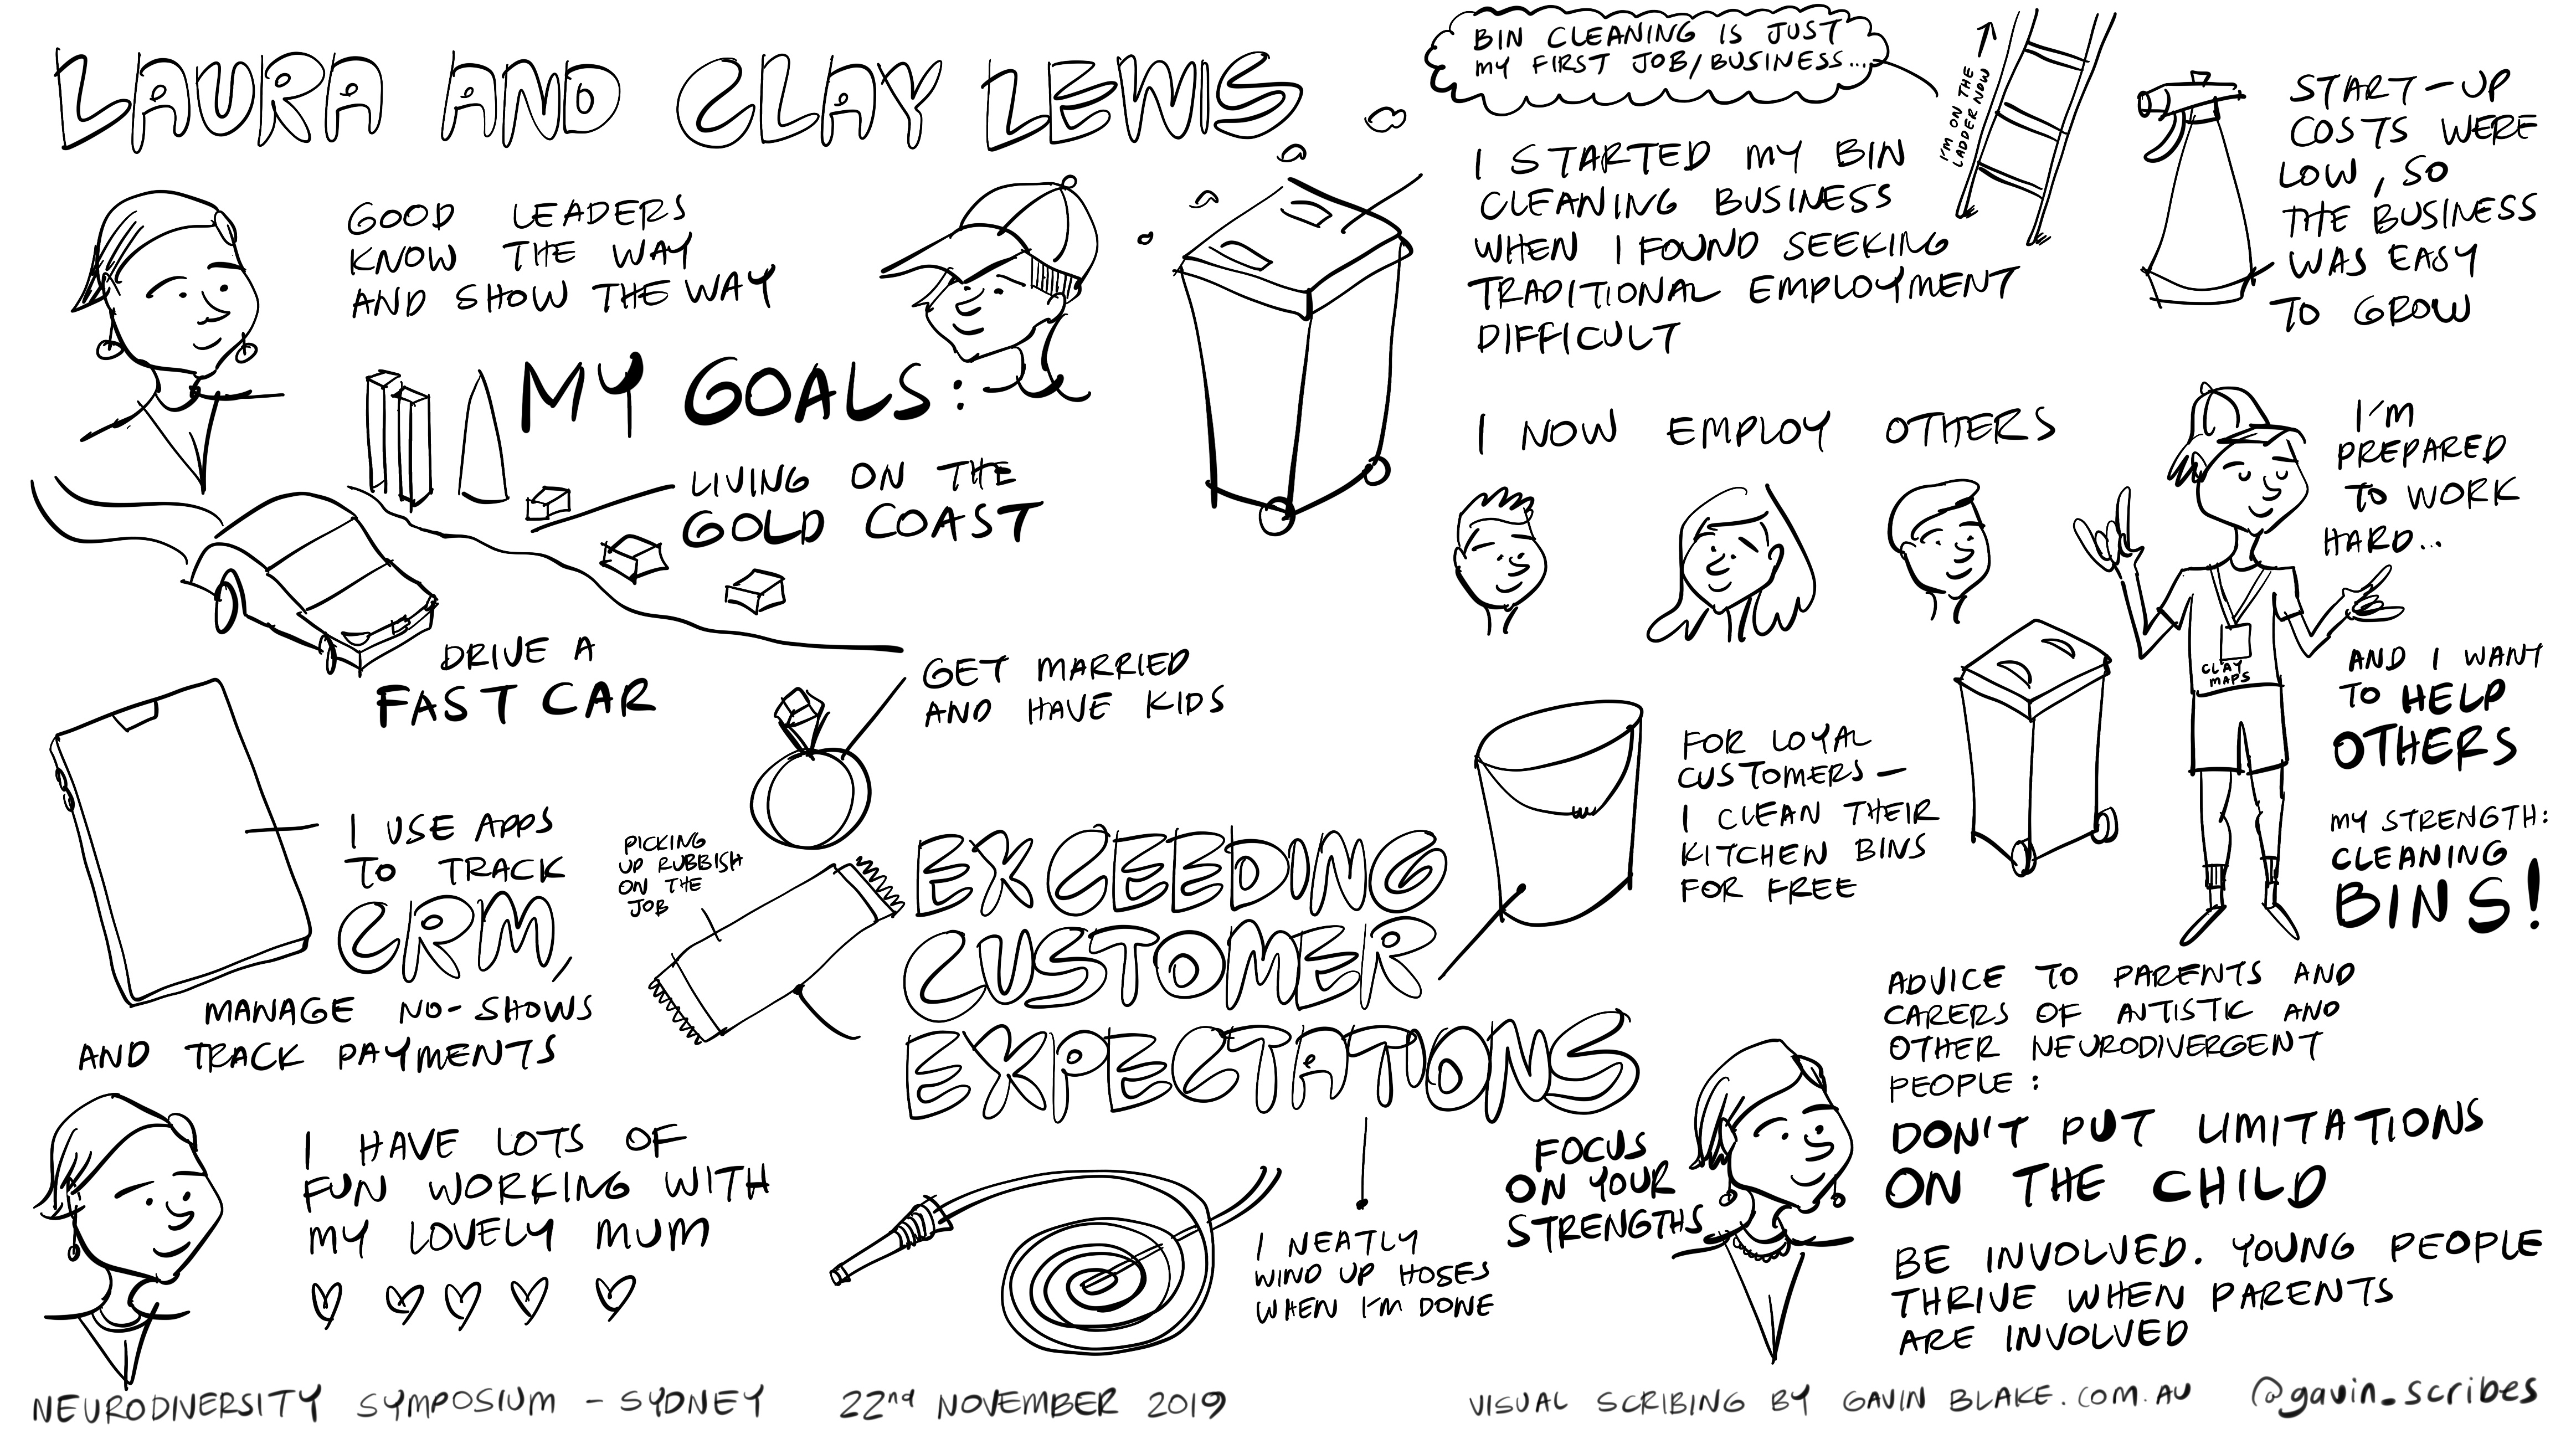 LAURA AND CLAY LEWIS
GOOD LEADERS
KNOW THE WAY
AND SHOW THE WAY
MY GOALS:
LIVING ON THE
GOLD COAST
DRIVE A
FAST CAR
GET MARRIED
AND HAVE KIDS
I USE APPS
TO TRACK
CRM,
MANAGE NO-SHOWS
AND TRACK PAYMENTS
I HAVE LOTS OF
FUN WORKING WITH
MY LOVELY MUM
BIN CLEANING IS JUST
MY FIRST JOB/BUSINESS...
I'M ON THE
LADDER NOW
I STARTED MY BIN
CLEANING BUSINESS
WHEN I FOUND SEEKING
TRADITIONAL EMPLOYMENT
DIFFICULT
START-UP
COSTS WERE
LOW, SO
THE BUSINESS
WAS EASY
TO GROW
I NOW EMPLOY OTHERS
I'M
PREPARED
TO WORK
HARD...
AND I WANT
TO HELP
OTHERS
CLAY
MAPS
MY STRENGTH:
CLEANING
BINS!
EXCEEDING
CUSTOMER
EXPECTATIONS
PICKING
UP RUBBISH
ON THE
JOB
FOR LOYAL
CUSTOMERS —
I CLEAN THEIR
KITCHEN BINS
FOR FREE
I NEATLY
WIND UP HOSES
WHEN I'M DONE
FOCUS
ON YOUR
STRENGTHS
ADVICE TO PARENTS AND
CARERS OF AUTISTIC AND
OTHER NEURODIVERGENT
PEOPLE:
DON'T PUT LIMITATIONS
ON THE CHILD
BE INVOLVED. YOUNG PEOPLE
THRIVE WHEN PARENTS
ARE INVOLVED
NEURODIVERSITY SYMPOSIUM - SYDNEY 22nd NOVEMBER 2019
VISUAL SCRIBING BY GAVIN BLAKE.COM.AU @gavin_scribes